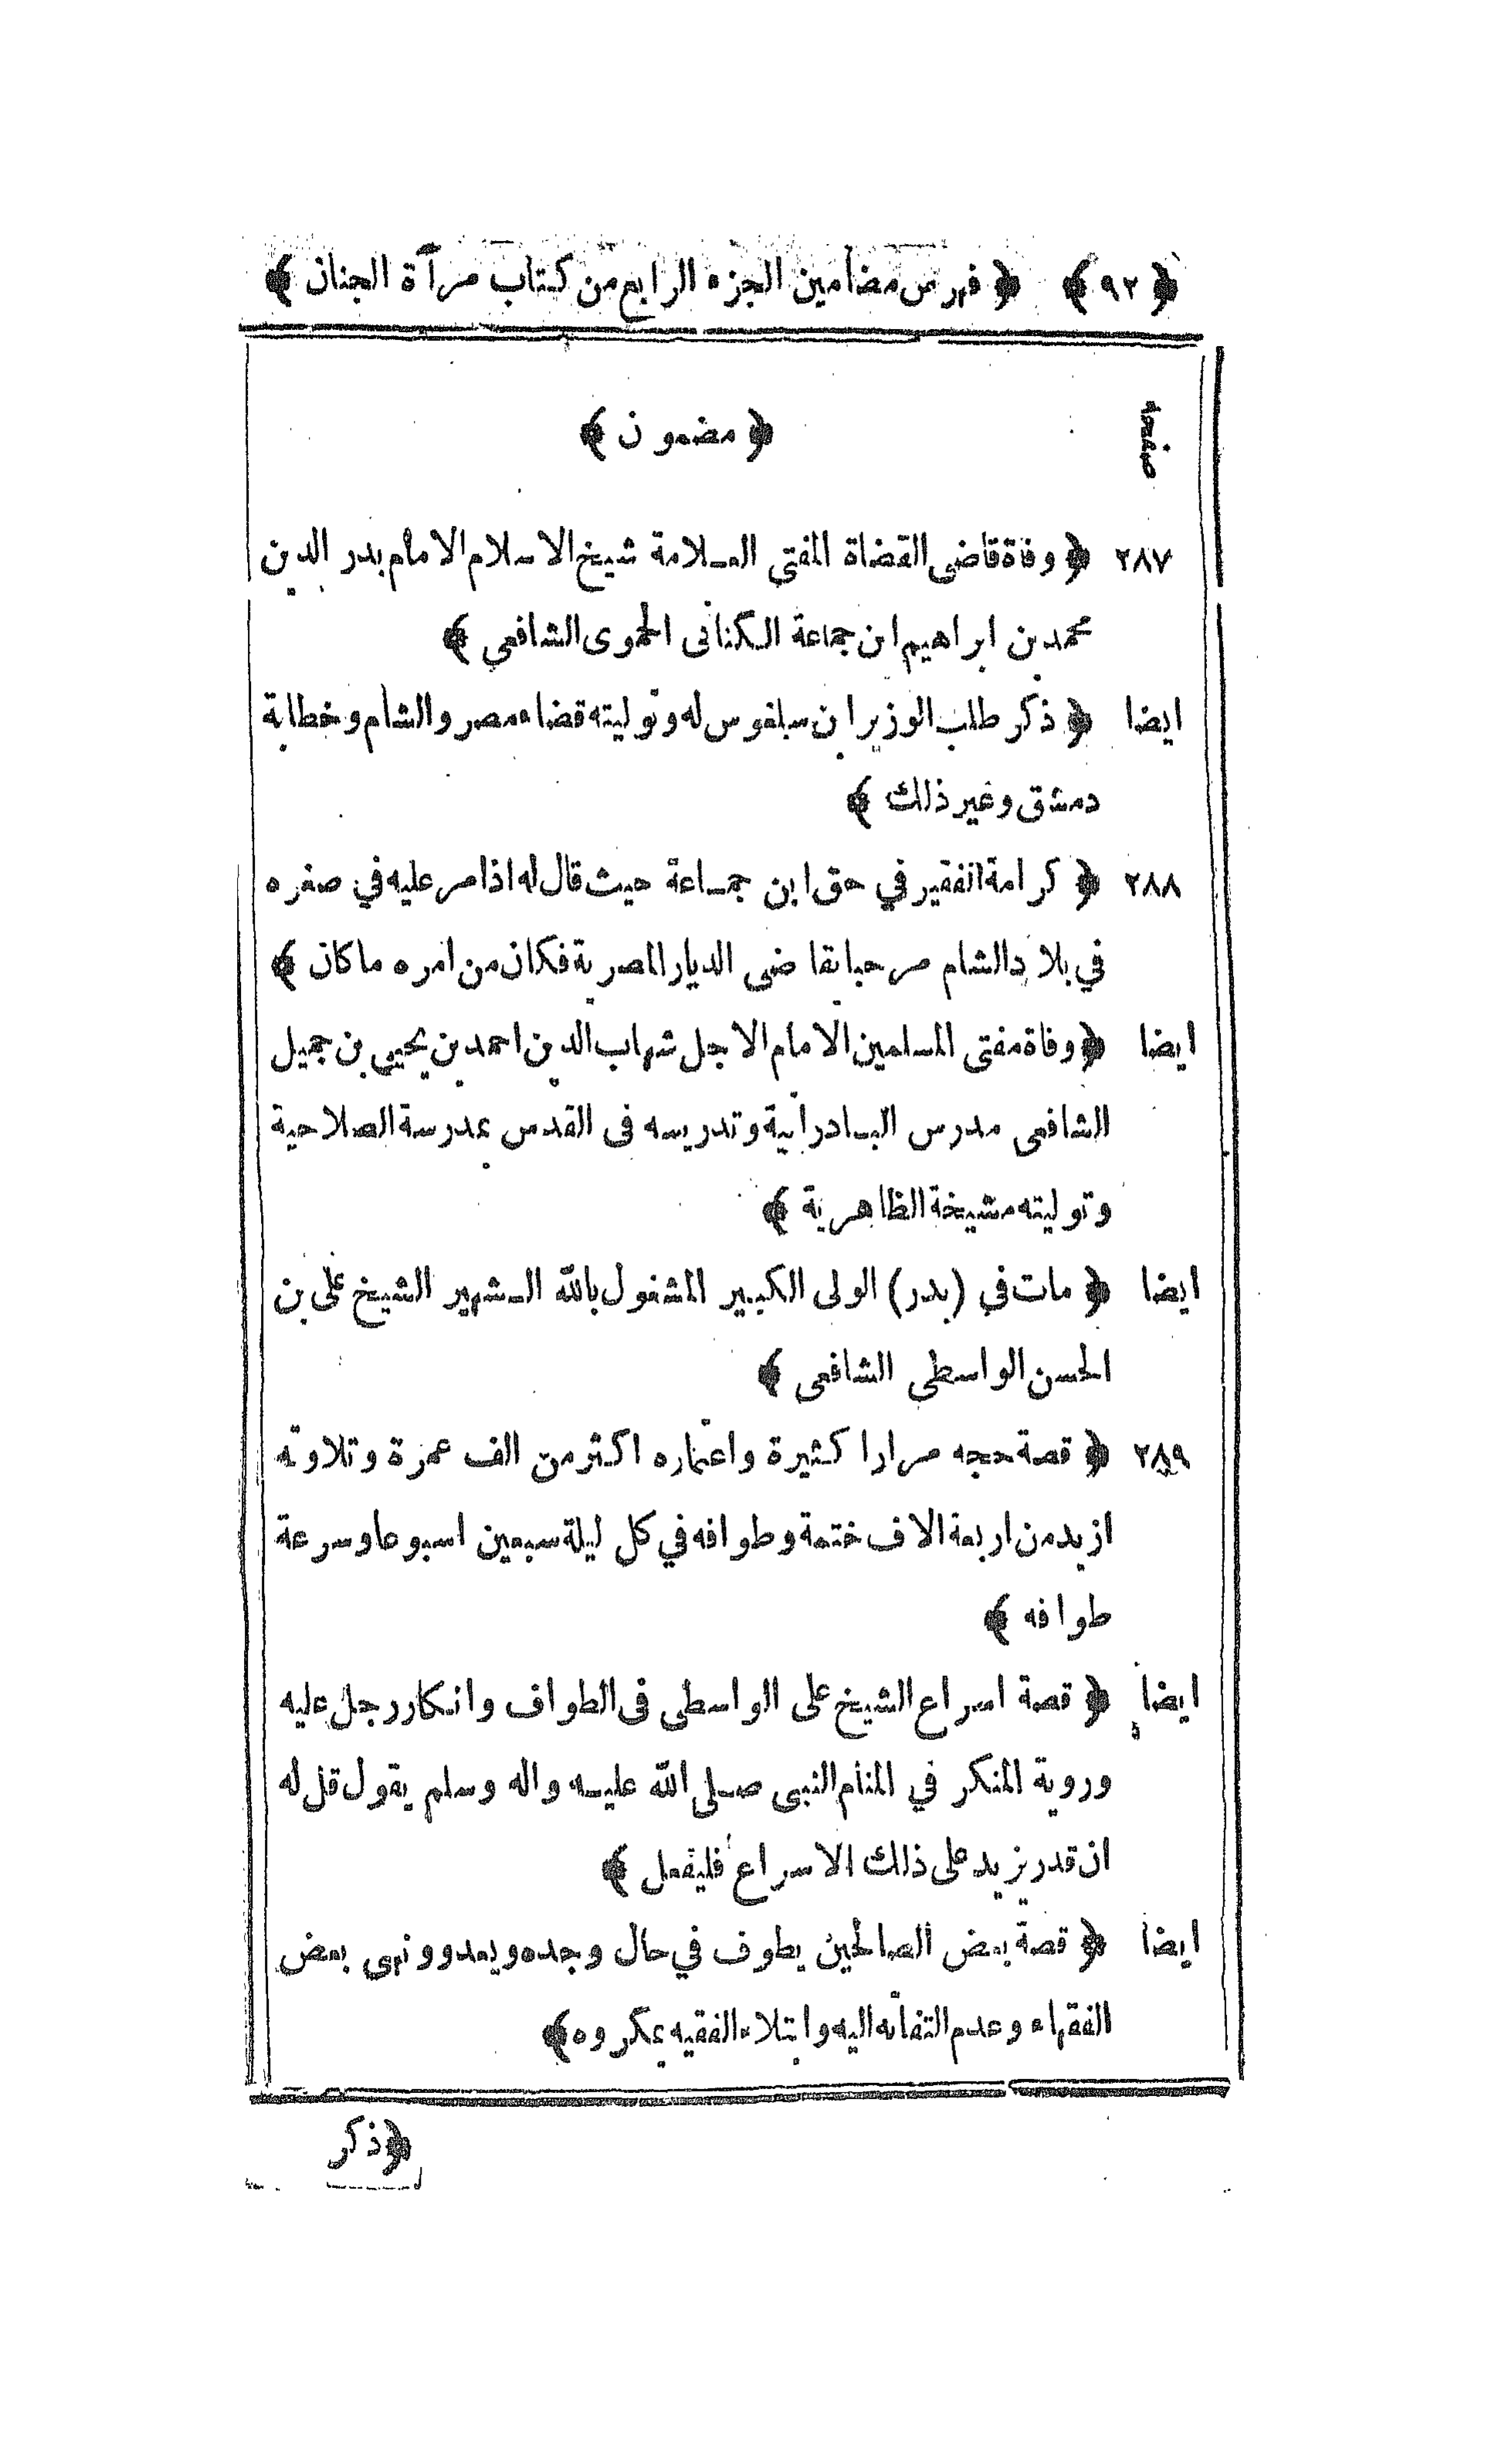 ﴿ ٩٢ ﴾ ﴿ فهرس مضامين الجزء الرابع من كتاب مرآة الجنان ﴾
صفحه ﴿ مضمون ﴾
٢٨٧ ﴿ وفاة قاضى القضاة المفتى العلامة شيخ الاسلام الامام بدر الدين
محمد بن ابراهيم ابن جماعة الكنانى الحموى الشافعى ﴾
ايضا ﴿ ذكر طلب الوزير ابن سلفوس له وتوليته قضاء مصر والشام وخطابة
دمشق وغير ذلك ﴾
٢٨٨ ﴿ كرامة الفقير في حق ابن جماعة حيث قال له اذا مر عليه في صغره
في بلاد الشام مرحبا بقاضى الديار المصرية فكان من امره ما كان ﴾
ايضا ﴿ وفاة مفتى المسلمين الامام الاجل شهاب الدين احمد بن يحيى بن جميل
الشافعى مدرس البادرائية وتدريسه فى القدس بمدرسة الصلاحية
وتوليته مشيخة الظاهرية ﴾
ايضا ﴿ مات في (بدر) الولى الكبير المشغول بالله الشهير الشيخ على بن
الحسن الواسطى الشافعى ﴾
٢٨٩ ﴿ قصة حجه مرارا كثيرة واعتماره اكثر من الف عمرة وتلاوته
ازيد من اربعة الاف ختمة وطوافه في كل ليلة سبعين اسبوعا وسرعة
طوافه ﴾
ايضا ﴿ قصة اسراع الشيخ على الواسطى فى الطواف وانكار رجل عليه
وروية المنكر في المنام النبى صلى الله عليه واله وسلم يقول قل له
ان قدر يزيد على ذلك الاسراع فليفعل ﴾
ايضا ﴿ قصة بعض الصالحين يطوف في حال وجده ويعدو ونهى بعض
الفقهاء وعدم التفاته اليه وابتلاء الفقيه بمكروه ﴾
﴿ ذكر